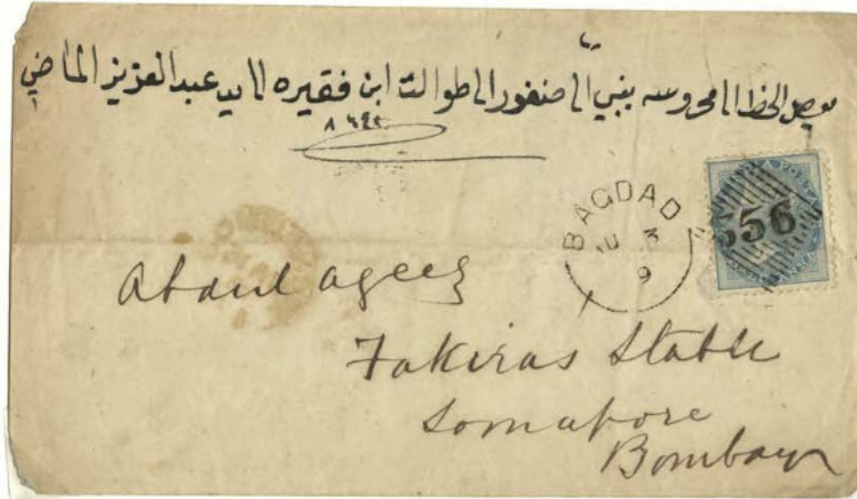 يصل الخط الى محروسه بنبي الى صنفور الى طوالت ابن فقيره الى يد عبد العزيز الماضي
٨٦٤٢
BAGDAD
3
9
356
Abdul ageez
Fakiras Stable
Somapore
Bombay